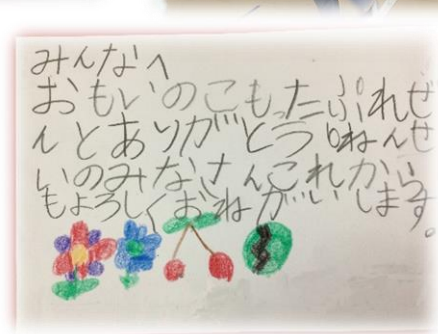 みんなへ
おもいのこもったぷれぜ
んとありがとう1ねんせ
いのみなさんこれから
もよろしくおねがいします。